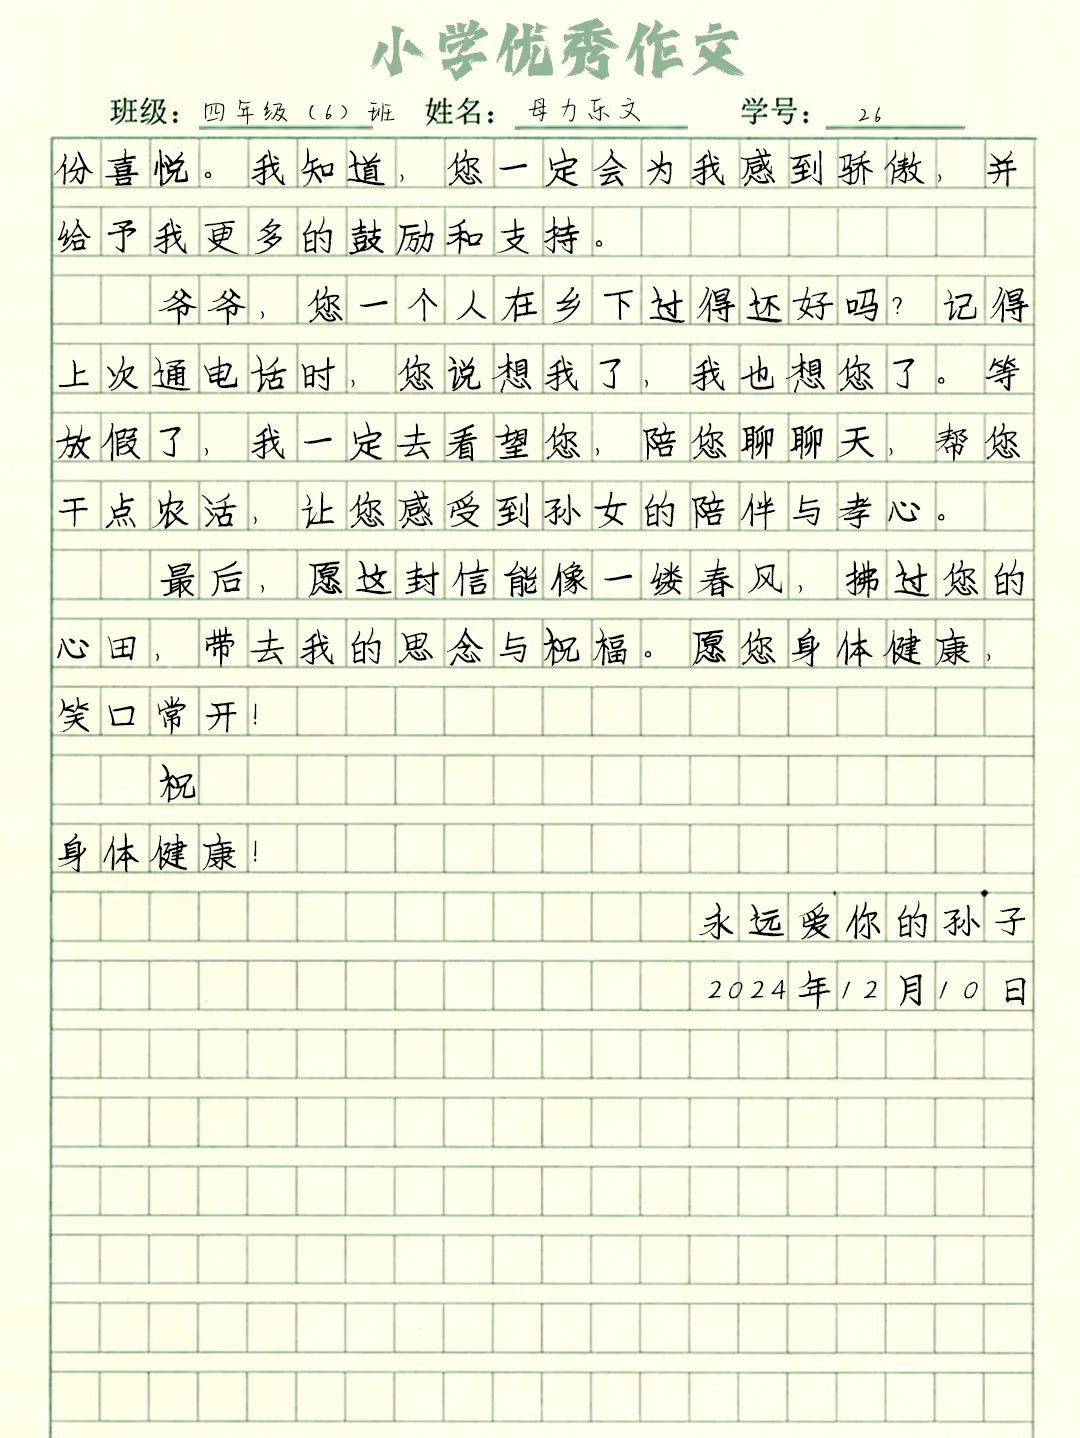 小学优秀作文
班级：四年级（6）班 姓名：母力乐文 学号：26
份喜悦。我知道，您一定会为我感到骄傲，并
给予我更多的鼓励和支持。
爷爷，您一个人在乡下过得还好吗？记得
上次通电话时，您说想我了，我也想您了。等
放假了，我一定去看望您，陪您聊聊天，帮您
干点农活，让您感受到孙女的陪伴与孝心。
最后，愿这封信能像一缕春风，拂过您的
心田，带去我的思念与祝福。愿您身体健康，
笑口常开！
祝
身体健康！
永远爱你的孙子
2024年12月10日